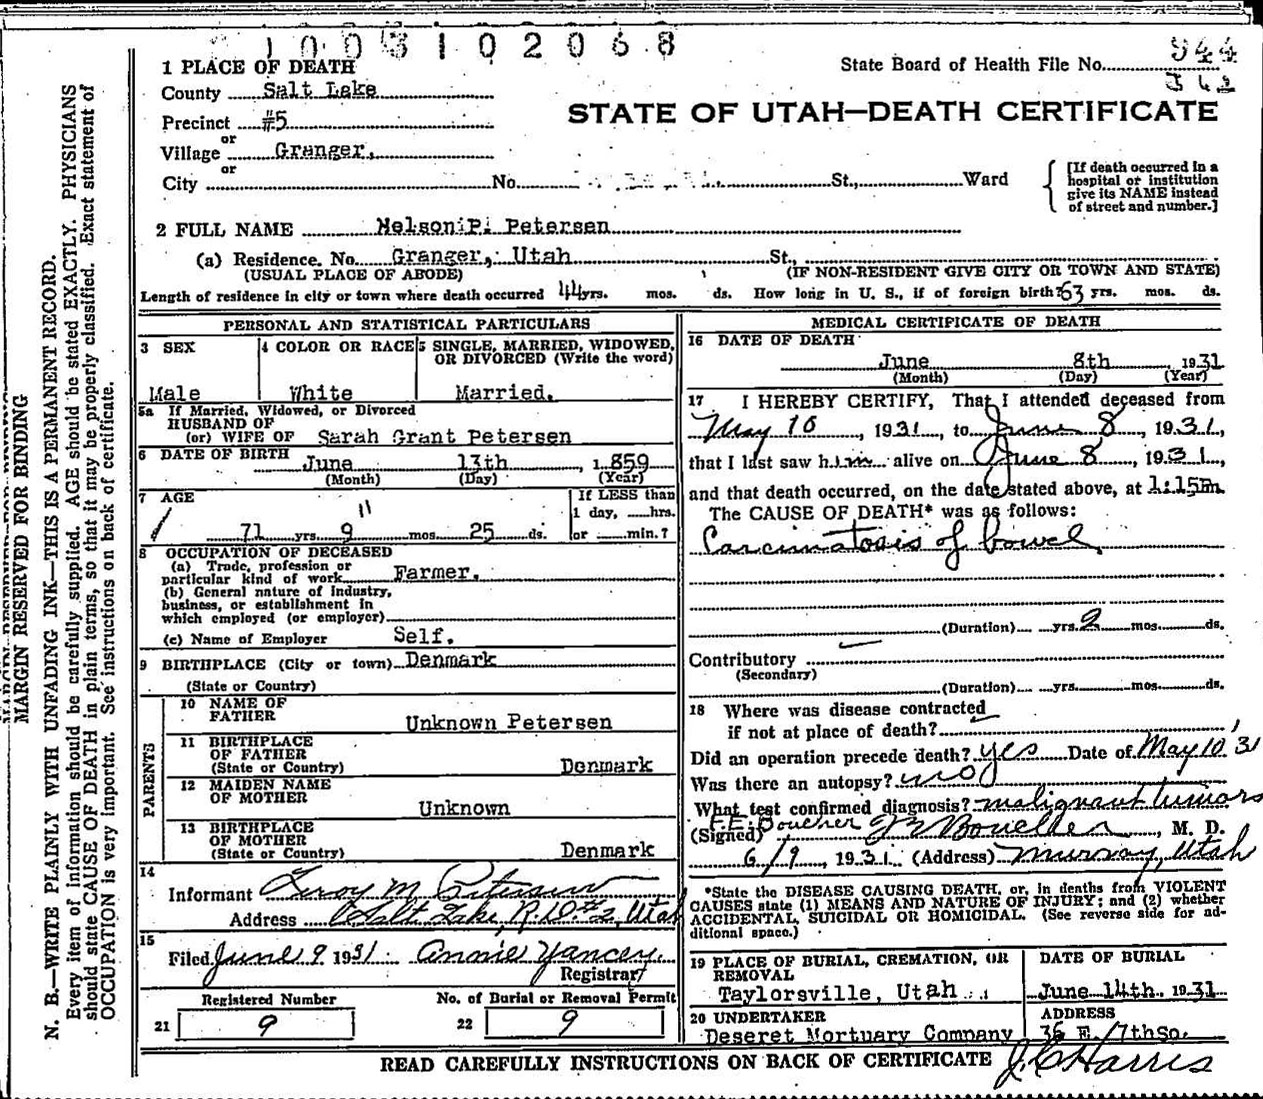 1003102068
State Board of Health File No. 944
362
1 PLACE OF DEATH
County Salt Lake
STATE OF UTAH—DEATH CERTIFICATE
Precinct #5
or
Village Granger,
or
City No. St., Ward
[If death occurred in a
hospital or institution
give its NAME instead
of street and number.]
2 FULL NAME Nelson P. Petersen
(a) Residence. No. Granger, Utah St.,
(USUAL PLACE OF ABODE) (IF NON-RESIDENT GIVE CITY OR TOWN AND STATE)
Length of residence in city or town where death occurred 44 yrs. mos. ds. How long in U. S., if of foreign birth? 63 yrs. mos. ds.
PERSONAL AND STATISTICAL PARTICULARS
3 SEX
Male
4 COLOR OR RACE
White
5 SINGLE, MARRIED, WIDOWED,
OR DIVORCED (Write the word)
Married.
5a If Married, Widowed, or Divorced
HUSBAND OF
(or) WIFE OF Sarah Grant Petersen
6 DATE OF BIRTH June 13th, 1859
(Month) (Day) (Year)
7 AGE
11
71 yrs. 9 mos. 25 ds.
If LESS than
1 day, hrs.
or min.?
8 OCCUPATION OF DECEASED
(a) Trade, profession or
particular kind of work Farmer.
(b) General nature of industry,
business, or establishment in
which employed (or employer)
(c) Name of Employer Self.
9 BIRTHPLACE (City or town) Denmark
(State or Country)
PARENTS
10 NAME OF
FATHER Unknown Petersen
11 BIRTHPLACE
OF FATHER
(State or Country) Denmark
12 MAIDEN NAME
OF MOTHER Unknown
13 BIRTHPLACE
OF MOTHER
(State or Country) Denmark
14
Informant Leroy M Petersen
Address Salt Lake, R.D #2, Utah
15
Filed June 9 1931 Annie Yancey,
Registrar
Registered Number
21 9
No. of Burial or Removal Permit
22 9
MEDICAL CERTIFICATE OF DEATH
16 DATE OF DEATH
June 8th 1931
(Month) (Day) (Year)
17 I HEREBY CERTIFY, That I attended deceased from
May 10, 1931, to June 8, 1931,
that I last saw him alive on June 8, 1931,
and that death occurred, on the date stated above, at 1:15 Pm.
The CAUSE OF DEATH* was as follows:
Carcimatosis of bowel
(Duration) yrs. 2 mos. ds.
Contributory
(Secondary)
(Duration) yrs. mos. ds.
18 Where was disease contracted
if not at place of death?
Did an operation precede death? yes Date of May 10 '31
Was there an autopsy? no
What test confirmed diagnosis? malignant tumors
F.E. Boucher
(Signed), M. D.
6/9, 1931. (Address) Murray, Utah
*State the DISEASE CAUSING DEATH, or, in deaths from VIOLENT
CAUSES state (1) MEANS AND NATURE OF INJURY; and (2) whether
ACCIDENTAL, SUICIDAL OR HOMICIDAL. (See reverse side for ad-
ditional space.)
19 PLACE OF BURIAL, CREMATION, OR
REMOVAL
Taylorsville, Utah
DATE OF BURIAL
June 14th. 1931
20 UNDERTAKER
Deseret Mortuary Company
ADDRESS
36 E. 7th So.
READ CAREFULLY INSTRUCTIONS ON BACK OF CERTIFICATE
J. C Harris
MARGIN RESERVED FOR BINDING
N. B.—WRITE PLAINLY WITH UNFADING INK—THIS IS A PERMANENT RECORD.
Every item of information should be carefully supplied. AGE should be stated EXACTLY. PHYSICIANS
should state CAUSE OF DEATH in plain terms, so that it may be properly classified. Exact statement of
OCCUPATION is very important. See instructions on back of certificate.